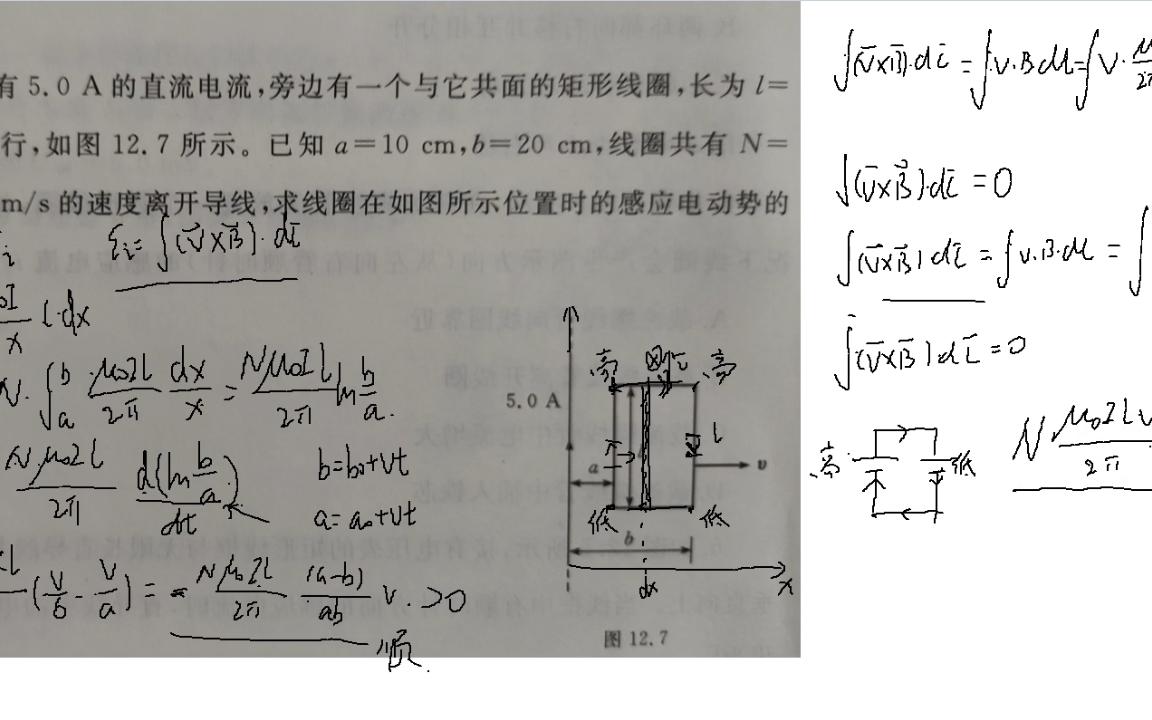 有 5.0 A 的直流电流,旁边有一个与它共面的矩形线圈,长为 l=
行,如图 12.7 所示。已知 a=10 cm,b=20 cm,线圈共有 N=
m/s 的速度离开导线,求线圈在如图所示位置时的感应电动势的
εi=∫(v⃗×B⃗)·dl⃗
l·dx
x
N·∫ₐᵇ μ₀Il/2π dx/x = Nμ₀Il/2π ln b/a.
Nμ₀Il/2π d(ln b/a)/dt
b=b₀+vt
a=a₀+vt
(v/b - v/a) = -Nμ₀Il/2π (a-b)/ab v. >0
顺.
高 ⊗ 高
5.0 A
l
a
v
低 低
b
dx
x
图 12.7
∫(v⃗×B⃗)·dl⃗ = ∫v·B dl = ∫v·
∫(v⃗×B⃗)·dl⃗ = 0
∫(v⃗×B⃗)dl⃗ = ∫v·B·dl = ∫
∫(v⃗×B⃗)·dl⃗ = 0
高 低
N μ₀Ilv/2π